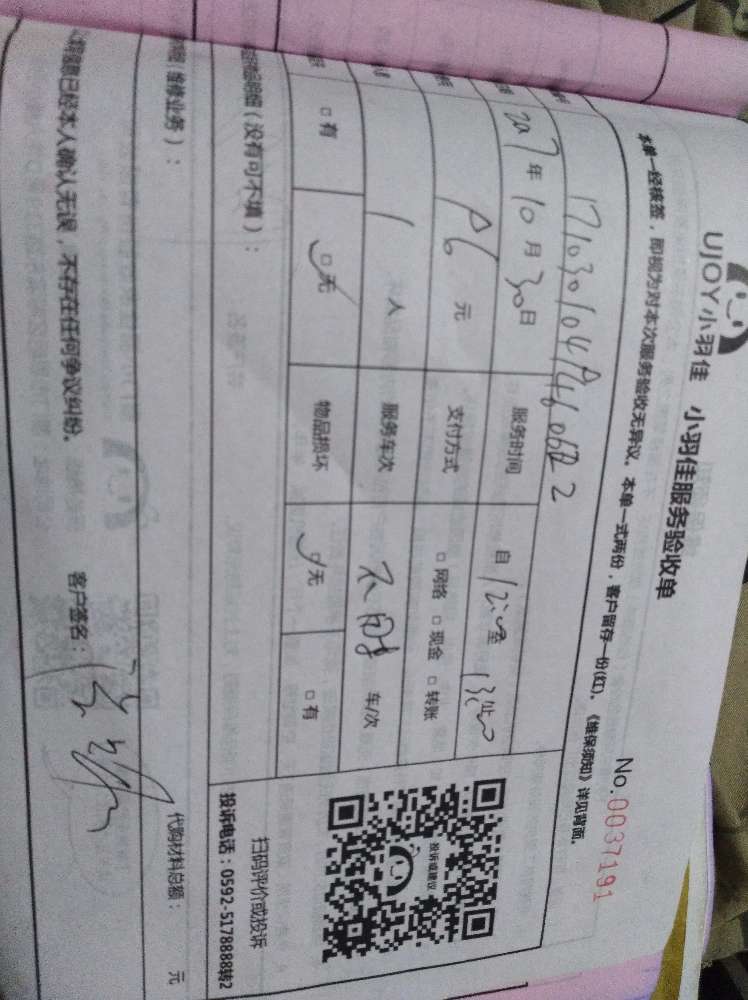 UJOY小羽佳 小羽佳服务验收单
No.0037191
本单一经核签，即视为对本次服务验收无异议。本单一式两份，客户留存一份(红)。《维保须知》详见背面。
年10月30日 服务时间 自12:00至
元 支付方式 □网络 □现金 □转账
1人 服务车次 不用 车/次
□有 □无 物品损坏 □无 □有
明细（没有可不填）：
（维修业务）：
代购材料总额： 元
投诉或建议
扫码评价或投诉
投诉电话：0592-5178888转2
已经本人确认无误，不存在任何争议纠纷。
客户签名：